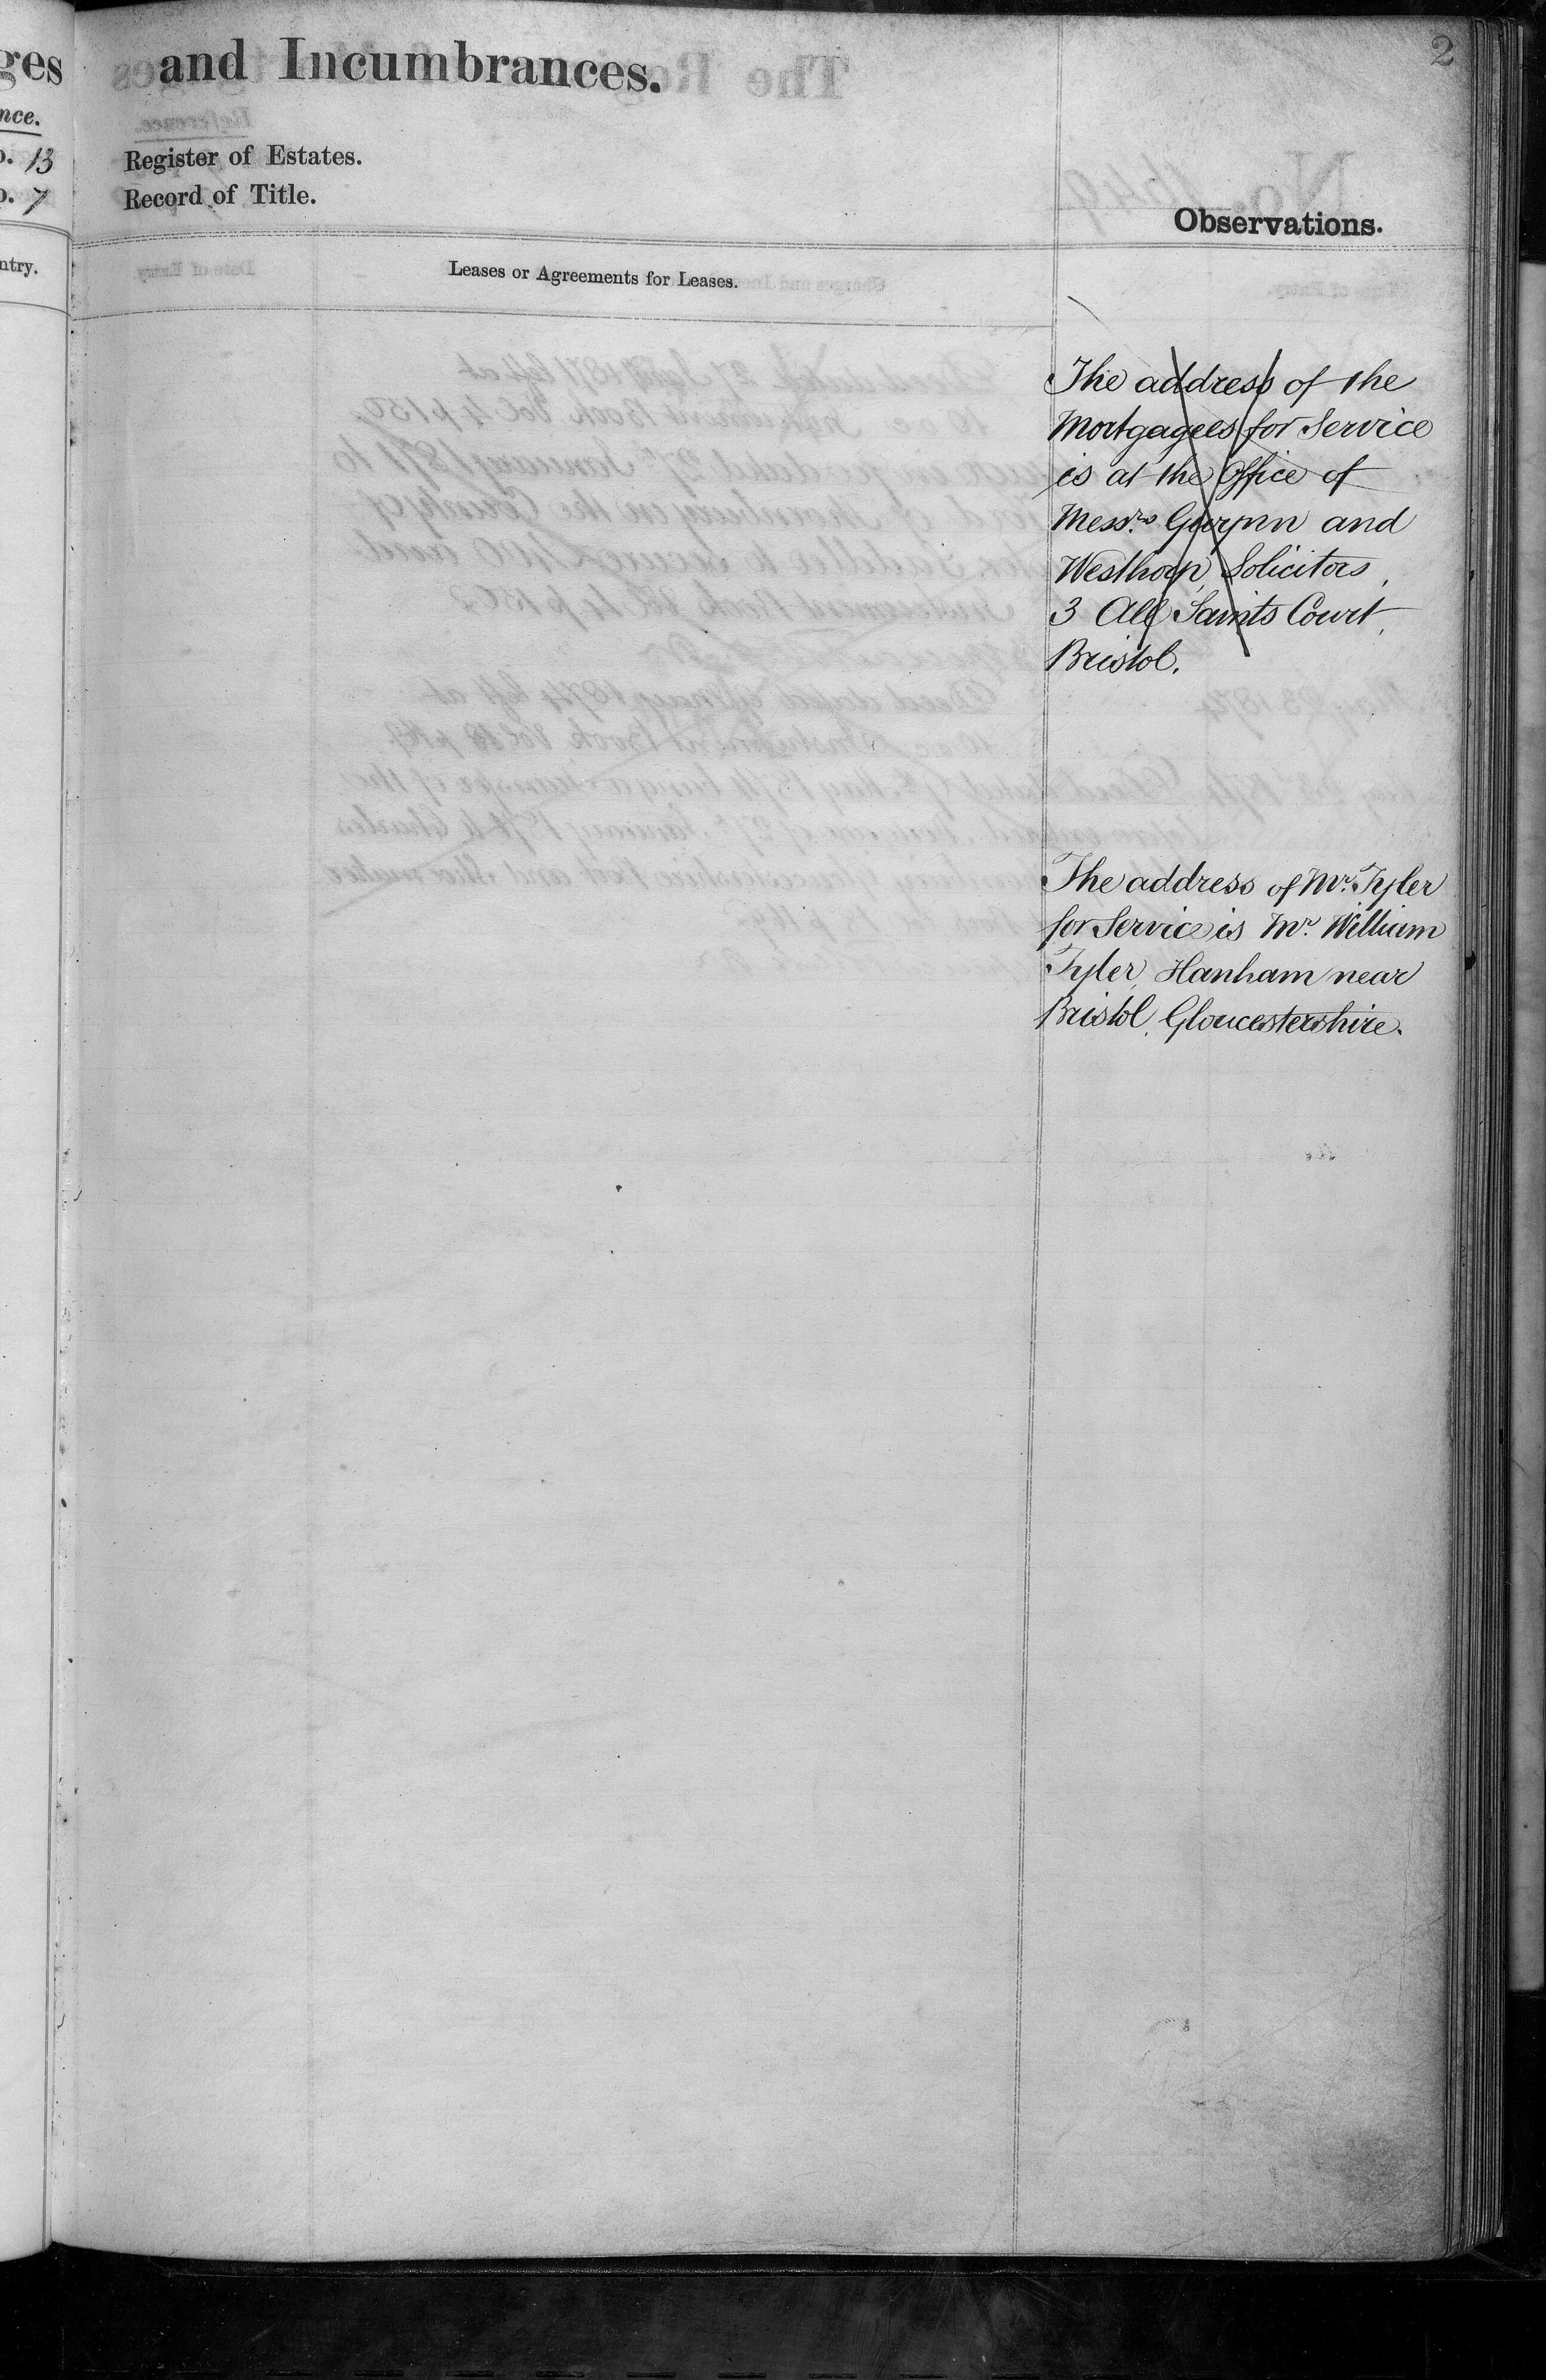 2
ges
and Incumbrances.
nce.
o. 13
Register of Estates.
o. 7
Record of Title.
Observations.
ntry.
Leases or Agreements for Leases.
The address of the
Mortgagees for Service
is at the Office of
Messrs. Gwynn and
Westhorp, Solicitors,
3 All Saints Court,
Bristol.
The address of Mr. Tyler
for Service is Mr. William
Tyler, Hanham near
Bristol, Gloucestershire.